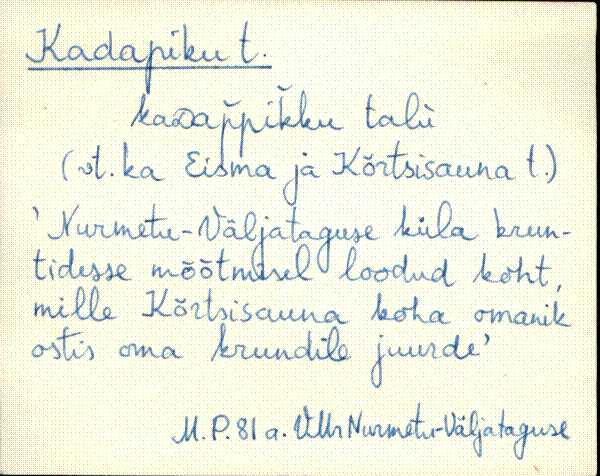 Kadapiku t.
kaᴅap̆pik̆ku talù
(vt. ka Eisma ja Kõrtsisauna t.)
'Nurmetu-Väljataguse küla krun-
tidesse mõõtmisel loodud koht,
mille Kõrtsisauna koha omanik
ostis oma krundile juurde'
M.P. 81 a. VMr Nurmetu-Väljataguse